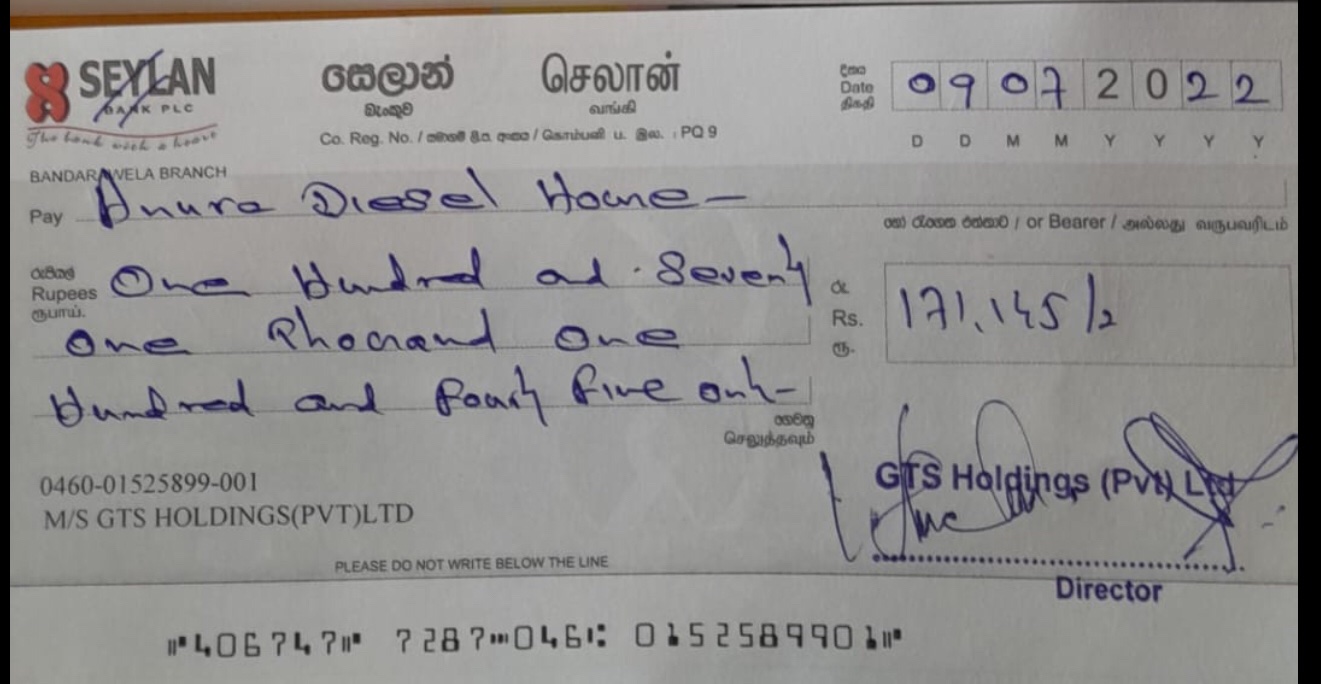 SEYLAN
BANK PLC
The bank with a heart
සෙලාන් செலான்
බැංකුව வங்கி
Co. Reg. No. / PQ 9
දිනය
Date 09072022
திகதி
D D M M Y Y Y Y
BANDARAWELA BRANCH
Pay Anura Diesel House –
or Bearer / அல்லது வருபவரிடம்
රුපියල්
Rupees One Hundred and Seventy
ரூபாய்.
One Thousand One
Hundred and Fourty Five only –
රු
Rs. 171,145/=
ரூ.
ගෙවනු
செலுத்தவும்
0460-01525899-001
M/S GTS HOLDINGS(PVT)LTD
GTS Holdings (Pvt) Ltd
Director
PLEASE DO NOT WRITE BELOW THE LINE
⑈406747⑈ 7287⑉046⑆ 0152589901⑈